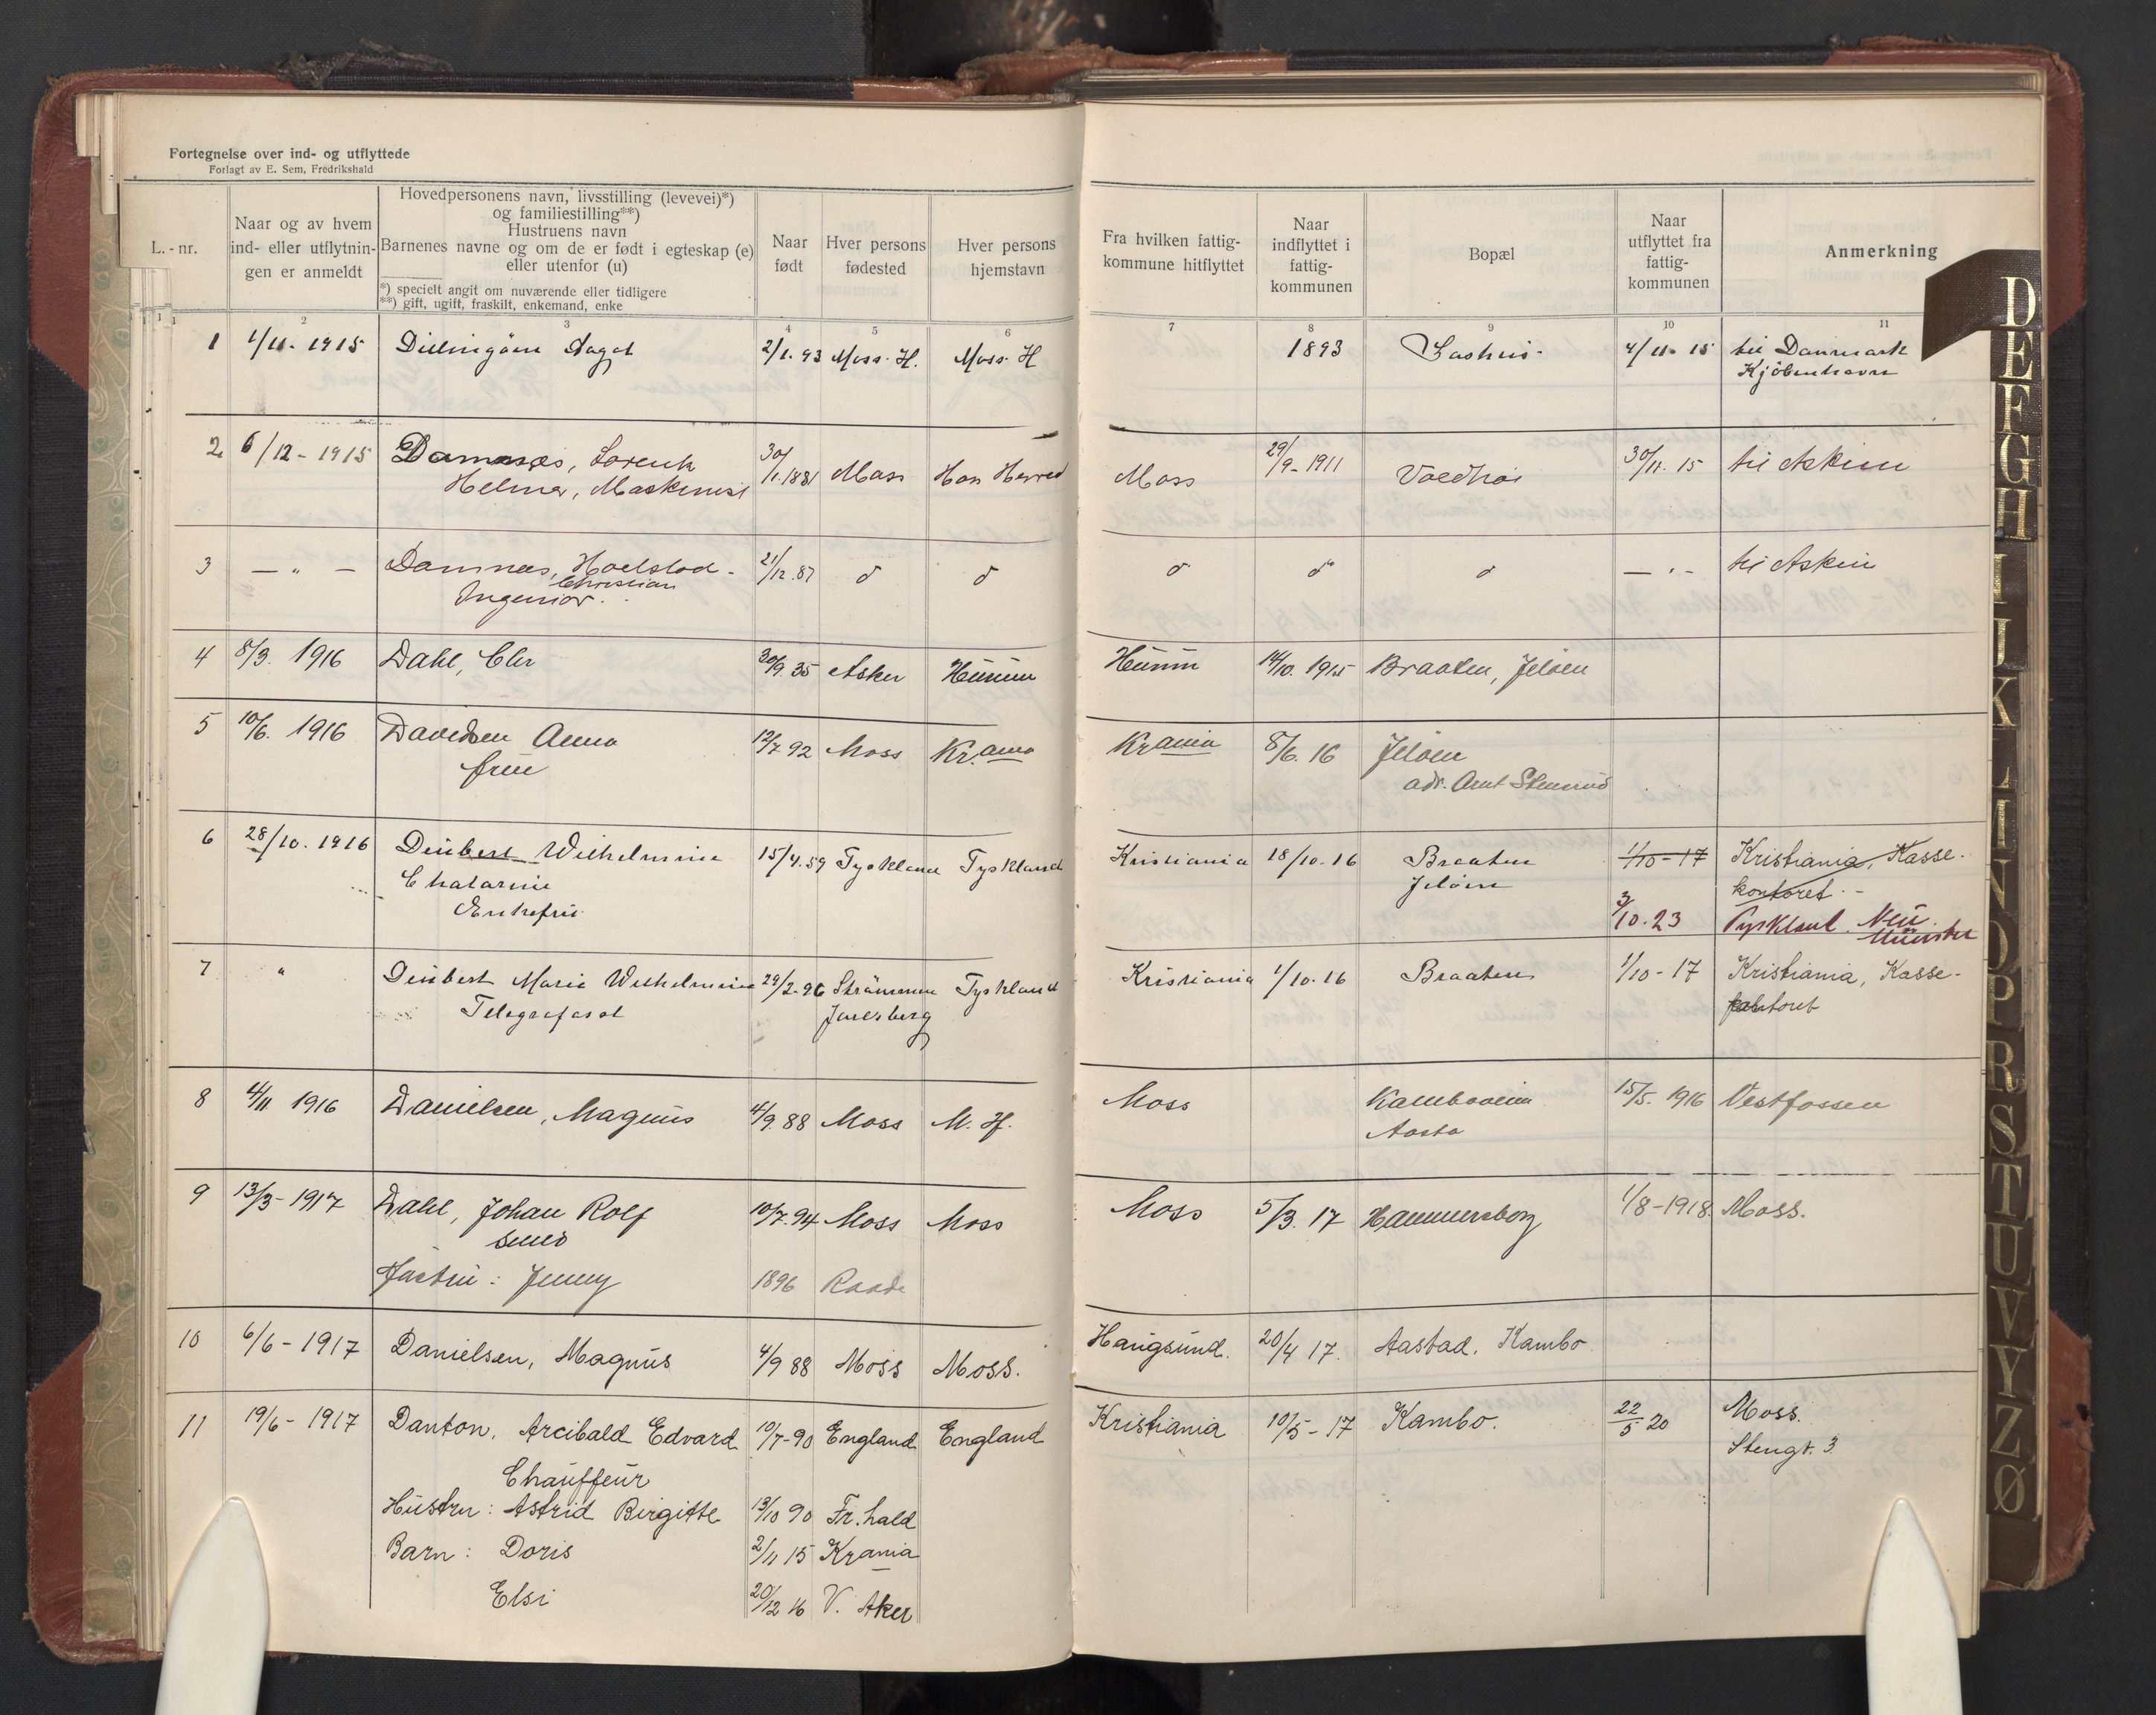 Fortegnelse over ind- og utflyttede
Forlagt av E. Sem, Fredrikshald
L.-nr.
Naar og av hvem
ind- eller utflytnin-
gen er anmeldt
Hovedpersonens navn, livsstilling (levevei)*)
og familiestilling**)
Hustruens navn
Barnenes navne og om de er født i egteskap (e)
eller utenfor (u)
*) specielt angit om nuværende eller tidligere
**) gift, ugift, fraskilt, enkemand, enke
Naar
født
Hver persons
fødested
Hver persons
hjemstavn
Fra hvilken fattig-
kommune hitflyttet
Naar
indflyttet i
fattig-
kommunen
Bopæl
Naar
utflyttet fra
fattig-
kommunen
Anmerkning
1 2 3 4 5 6 7 8 9 10 11
1 1/11. 1915 Aagot 2/1. 93 Moss. H. Moss. H 1893 4/11. 15 til Danmark
Kjöbenhavn
2 6/12 - 1915 Damnæs, 30/1. 1881 Moss Moss 29/9 - 1911 30/11. 15 til Askim
Helmer, Maskinist
3 — " — Damnæs, 21/12. 87 d d d d d — " — til Askim
Christian
Ingeniør.
4 8/3. 1916 Dahl, Chr 30/9. 35 Asker Hurum Hurum 14/10. 1915 Braaten, Jeløen
5 10/6. 1916 Davidsen Anna 12/7 92 Moss Kr.ania Krania 8/6. 16 Jeløen
frue adr. Arnt Stensrud
6 28/10. 1916 Deubert Wilhelmine 15/4. 59 Tyskland Tyskland Kristiania 18/10. 16 Braaten 1/10 - 17 Kristiania, Kasse-
Chatarine Jeløen kontoret.
Enkefru 3/10. 23 Tyskland. Neu
Münster
7 " Deubert Marie Wilhelmine 29/2. 96 Strömmen Tyskland Kristiania 1/10. 16 Braaten 1/10 - 17 Kristiania, Kasse-
Telegrafist Jarlsberg kontoret
8 4/11 1916 Danielsen, Magnus 4/9. 88 Moss M. H. Moss 15/5. 1916 Vestfossen
9 13/3 - 1917 Dahl, Johan Rolf 10/7. 94 Moss Moss Moss 5/3. 17 Hammersborg 1/8 - 1918. Moss.
smed
Hustru: Jenny 1896 Raade
10 6/6 - 1917 Danielsen, Magnus 4/9 88 Moss Moss. Haugsund. 20/4 17. Aastad. Kambo
11 19/6 - 1917 Danton, Arcibald Edvard 10/7 - 90 England England Kristiania 10/5 - 17 Kambo. 22/5 20 Moss.
Chauffeur Stengt. 3
Hustru: Astrid Birgitte 13/10 90 Fr.hald
Barn: Doris 2/11 15 Krania
Elsi 20/12 16 V. Aker
D
E
F
G
H
I
J
K
L
N
O
P
R
S
T
U
V
Y
Z
Ø